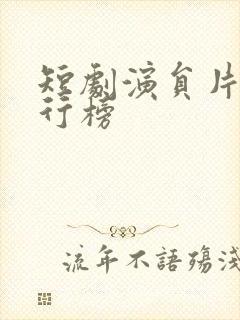 短劇演員片
行榜
流年不語殤淺